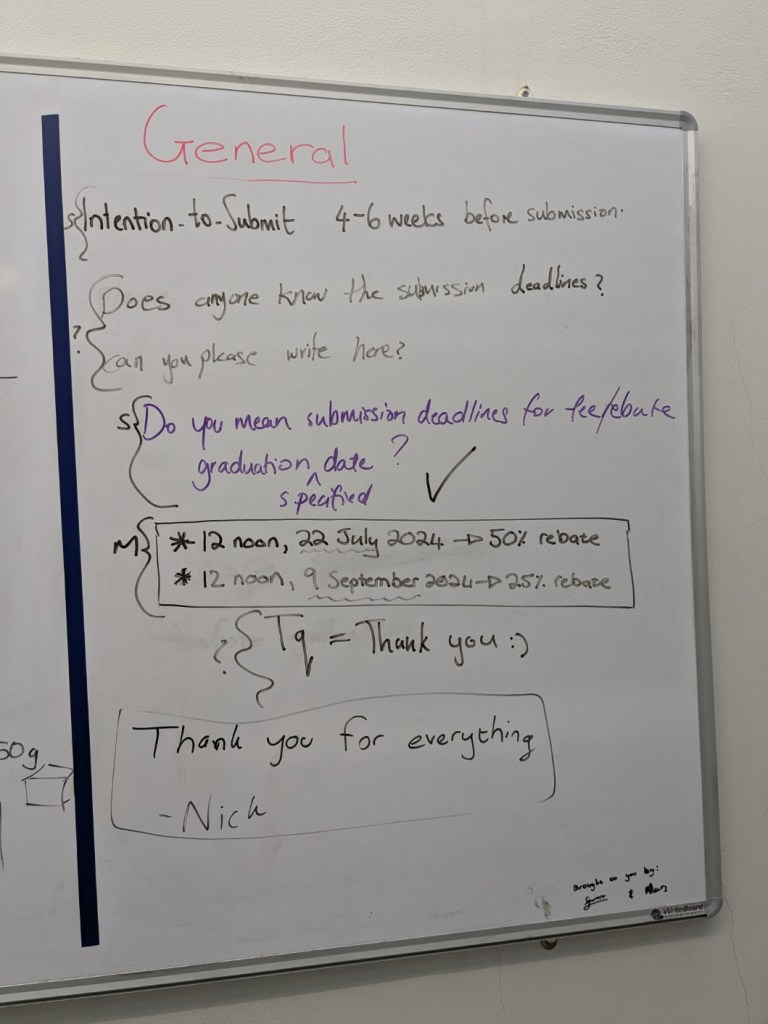 General
S{ Intention-to-Submit 4-6 weeks before submission.
Does anyone know the submission deadlines?
?{
can you please write here?
S{ Do you mean submission deadlines for fee/ebate
graduation ^ date ?
specified ✓
M{ * 12 noon, 22 July 2024 → 50% rebate
* 12 noon, 9 September 2024 → 25% rebate
?{ Tq = Thank you :)
Thank you for everything
50g
- Nick
Brought to you by:
&
WhiteBoard